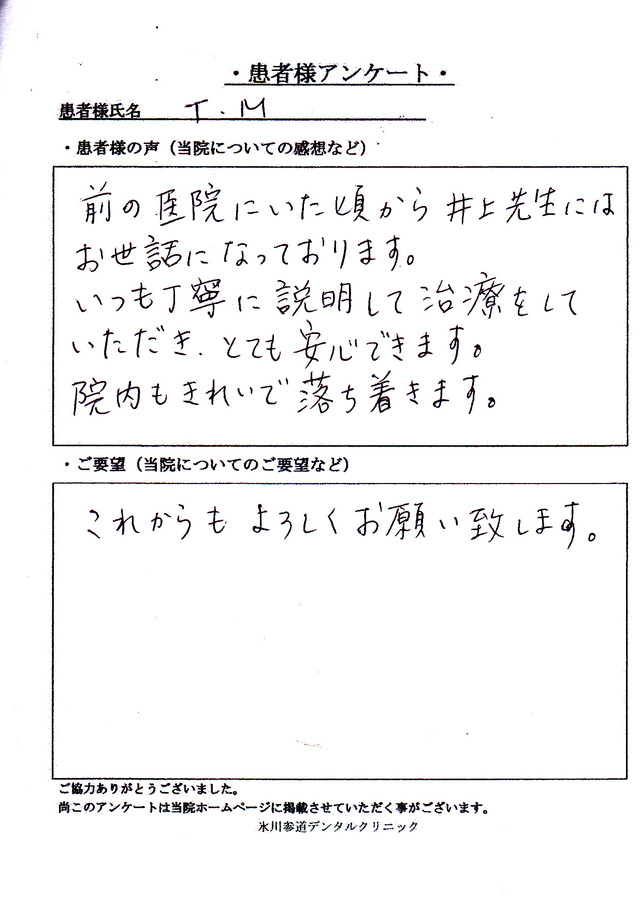 ・患者様アンケート・
患者様氏名 T.M
・患者様の声（当院についての感想など）
前の医院にいた頃から井上先生には
お世話になっております。
いつも丁寧に説明して治療をして
いただき、とても安心できます。
院内もきれいで落ち着きます。
・ご要望（当院についてのご要望など）
これからもよろしくお願い致します。
ご協力ありがとうございました。
尚このアンケートは当院ホームページに掲載させていただく事がございます。
氷川参道デンタルクリニック